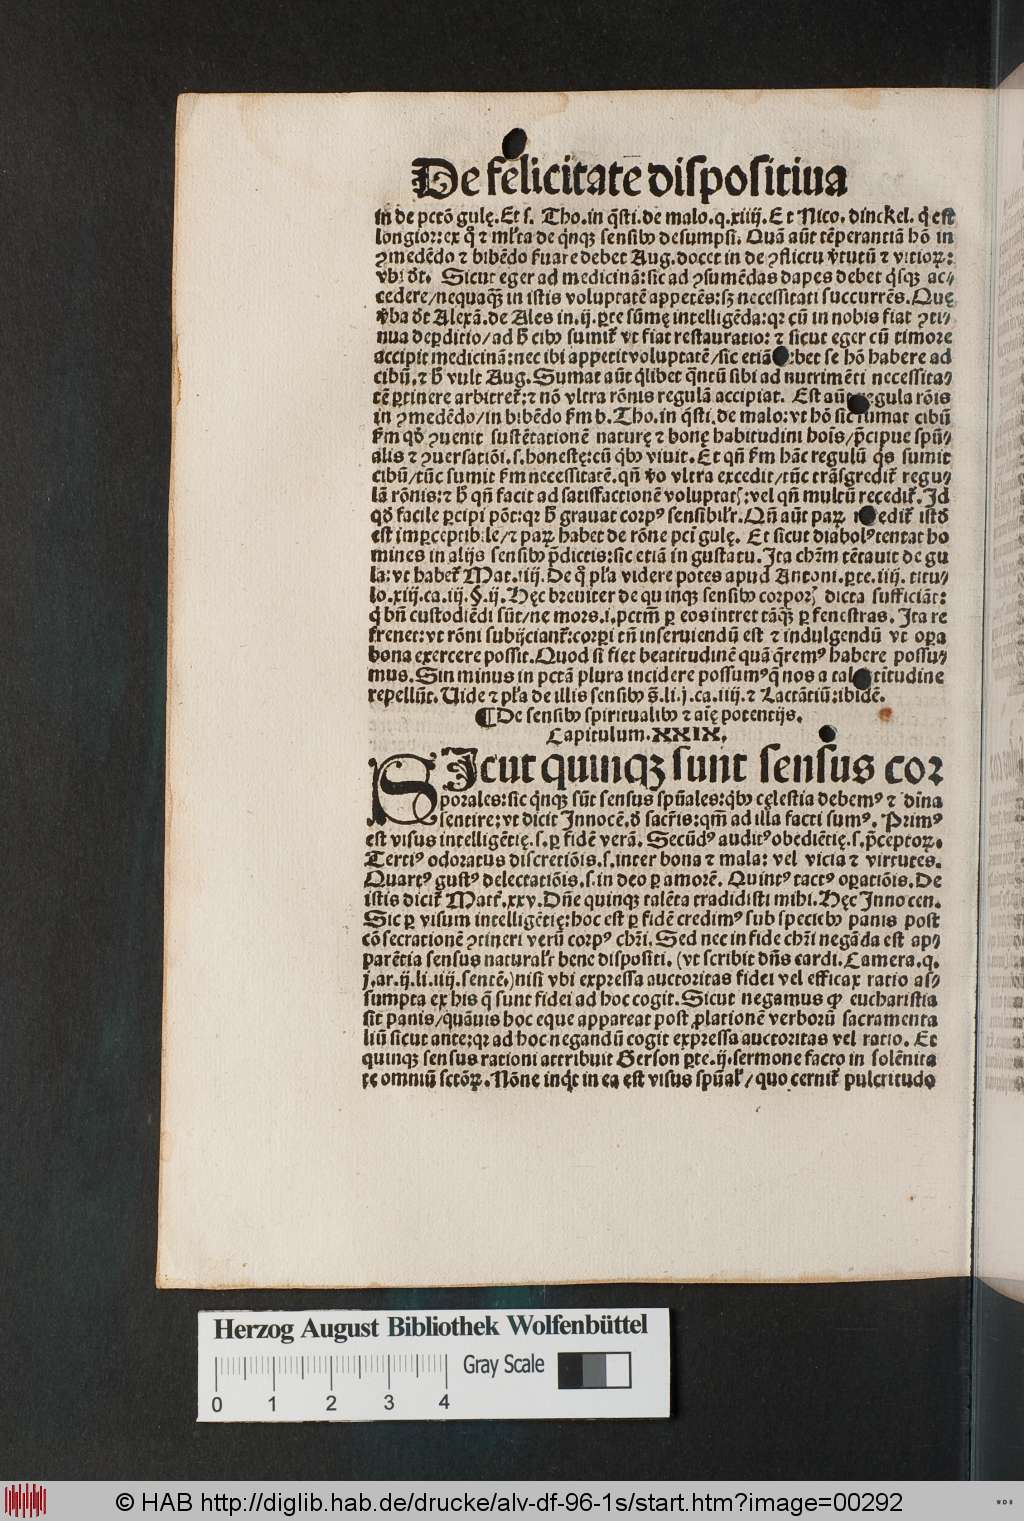 De felicitate dispositiua
in de pctō gulę. Et s. Tho. in q̄sti. de malo. q. xiiij. Et Nico. dinckel. q̇ est
longior: ex q̊ ⁊ ml'ta de q̇nqꝫ sensibꝰ desumpsi. Quā aūt tēperantiā hō in
ꝯmedēdo ⁊ bibēdo ẜuare debet Aug. docet in de ꝯflictu v̓tutū ⁊ vitioꝝ:
vbi d̓t. Sicut eger ad medicinā: sic ad ꝯsumēdas dapes debet q̇sqꝫ ac⸗
cedere/nequaqꝫ̄ in istis voluptatē appetēs: sꝫ necessitati succurrēs. Quę
v̓ba d̓t Alexā. de Ales in. ij. ꝑte sūmę intelligēda: qꝛ cū in nobis fiat ꝯti⸗
nua deꝑditio/ad h̄ cibꝰ sumit᷑ vt fiat restauratio: ⁊ sicut eger cū timore
accipit medicinā: nec ibi appetit voluptatē/sic etiā bet se hō habere ad
cibū. ⁊ h̄ vult Aug. Sumat aūt q̇libet q̄ntū sibi ad nutrimēti necessita⸗
tē ꝑtinere arbitret᷑: ⁊ nō vltra rōnis regulā accipiat. Est aūt regula rōis
in ꝯmedēdo/in bibēdo ẜm b. Tho. in q̄sti. de malo: vt hō sic sumat cibū
ẜm qd̓ ꝯuenit sustētationē naturę ⁊ bonę habitudini hoīs/p̄cipue spū⸗
alis ⁊ ꝯuersatiōi. s. honestę: cū q̇bꝰ viuit. Et qn̄ ẜm hāc regulū q̇s sumit
cibū/tūc sumit ẜm necessitatē. qn̄ v̓o vltra excedit/tūc trāsgredit᷑ regu⸗
lā rōnis: ⁊ h̄ qn̄ facit ad satisfactionē voluptatꝭ: vel qn̄ multū recedit᷑. Id
qd̓ facile ꝑcipi pōt: qꝛ h̄ grauat corpꝰ sensibilr̄. Qn̄ aūt paꝝ recedit᷑ istd̓
est imꝑceptibile/⁊ paꝝ habet de rōne pcti gulę. Et sicut diabolꝰ tentat ho
mines in alijs sensibꝰ p̄dictis: sic etiā in gustatu. Ita chr̄m tētauit de gu
la: vt habet᷑ Mat. iiij. De q̊ pl'a videre potes apud Antoni. ꝑte. iiij. titu⸗
lo. xiij. ca. iij. §. ij. Hęc breuiter de quinqꝫ sensibꝰ corporꝭ dicta sufficiāt:
q̇ bn̄ custodiēdi sūt/ne mors. i. pctm̄ ꝑ eos intret tāqꝫ̄ ꝑ fenestras. Ita re
frenet: vt rōni subijciant᷑: corꝑi tn̄ inseruiendū est ⁊ indulgendū vt oꝑa
bona exercere possit. Quod si fiet beatitudinē quā q̄remꝰ habere possu⸗
mus. Sin minus in pctā plura incidere possumꝰ q̄ nos a tali titudine
repellūt. Uide ⁊ pl'a de illis sensibꝰ s̄. li. j. ca. iiij. ⁊ Lactātiū: ibidē.
¶ De sensibꝰ spiritualibꝰ ⁊ aīę potentijs.
Capitulum. XXIX.
SIcut quinqꝫ sunt sensus cor
porales: sic q̇nqꝫ sūt sensus spūales: q̇bꝰ cęlestia debemꝰ ⁊ diīna
sentire: vt dicit Innocē. d̓ sacr̄is: qm̄ ad illa facti sumꝰ. Primꝰ
est visus intelligētię. s. ꝑ fidē verā. Secūdꝰ auditꝰ obediētię. s. p̄ceptoꝝ.
Tertiꝰ odoratus discretiōis. s. inter bona ⁊ mala: vel vicia ⁊ virtutes.
Quartꝰ gustꝰ delectatiōis. s. in deo ꝑ amorē. Quintꝰ tactꝰ oꝑatiōis. De
istis dicit᷑ Matt̄. xxv. Dn̄e quinqꝫ talēta tradidisti mihi. Hęc Innocen.
Sic ꝑ visum intelligētię: hoc est ꝑ fidē credimꝰ sub speciebꝰ panis post
cōsecrationē ꝯtineri verū corpꝰ chr̄i. Sed nec in fide chr̄i negāda est ap⸗
parētia sensus naturalr̄ bene dispositi. (vt scribit dn̄s cardi. Camera. q.
j. ar. ij. li. iiij. sentē.) nisi vbi expressa auctoritas fidei vel efficax ratio as⸗
sumpta ex his q̄ sunt fidei ad hoc cogit. Sicut negamus ꝙ eucharistia
sit panis/quāuis hoc eque appareat post ꝓlationē verborū sacramenta
liū sicut ante: qꝛ ad hoc negandū cogit expressa auctoritas vel ratio. Et
quinqꝫ sensus rationi attribuit Gerson ꝑte. ij. sermone facto in solēnita
te omniū sctōꝝ. Nōne inq̇t in ea est visus spūal'/quo cernit᷑ pulcritudo
Herzog August Bibliothek Wolfenbüttel
Gray Scale
0 1 2 3 4
© HAB http://diglib.hab.de/drucke/alv-df-96-1s/start.htm?image=00292